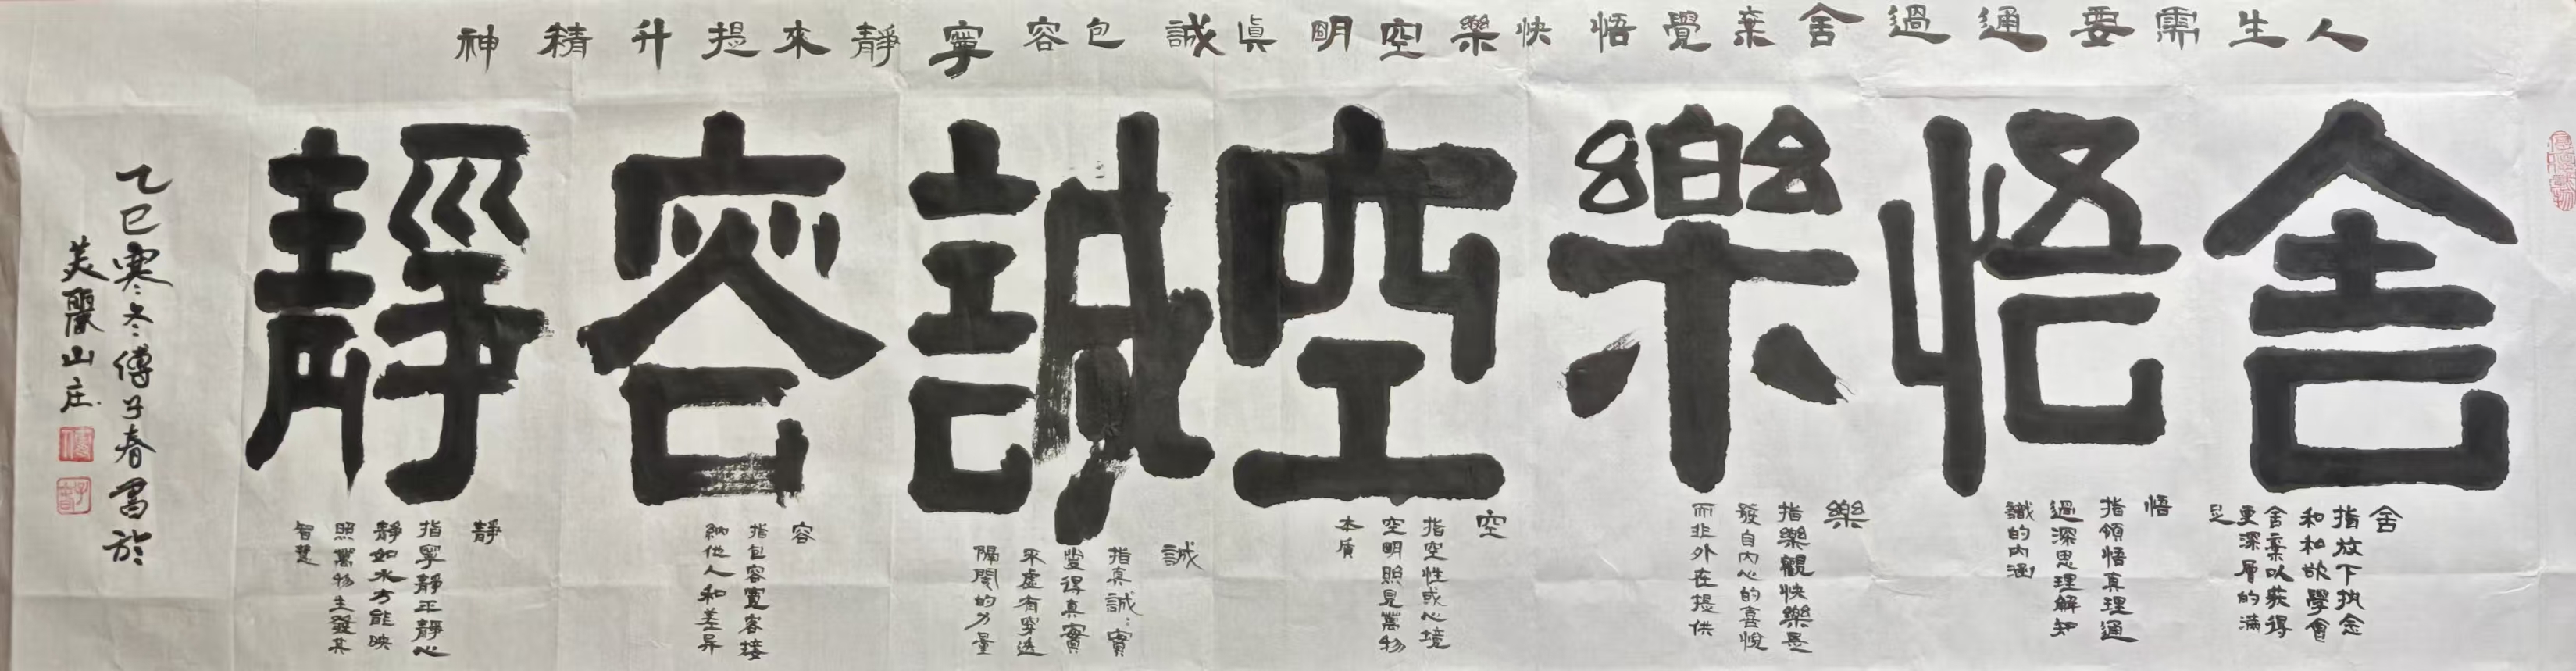 人生需要通過舍棄覺悟快樂空明眞誠包容寧靜來提升精神
舍悟樂空誠容靜
舍
指放下执念
和和欲學會
舍棄以获得
更深層的满
足
悟
指領悟真理通
過深思理解知
識的内涵
樂
指樂觀快樂是
發自内心的喜悅
而非外在提供
空
指空性或心境
空明照見萬物
本质
誠
指真誠
真實
虚有穿透
隔閡的力量
容
指包容寬容接
納他人和差异
靜
指寧靜平靜心
靜如水方能映
照萬物生發其
智慧
乙巳寒冬傅子春書於
美麗山庄